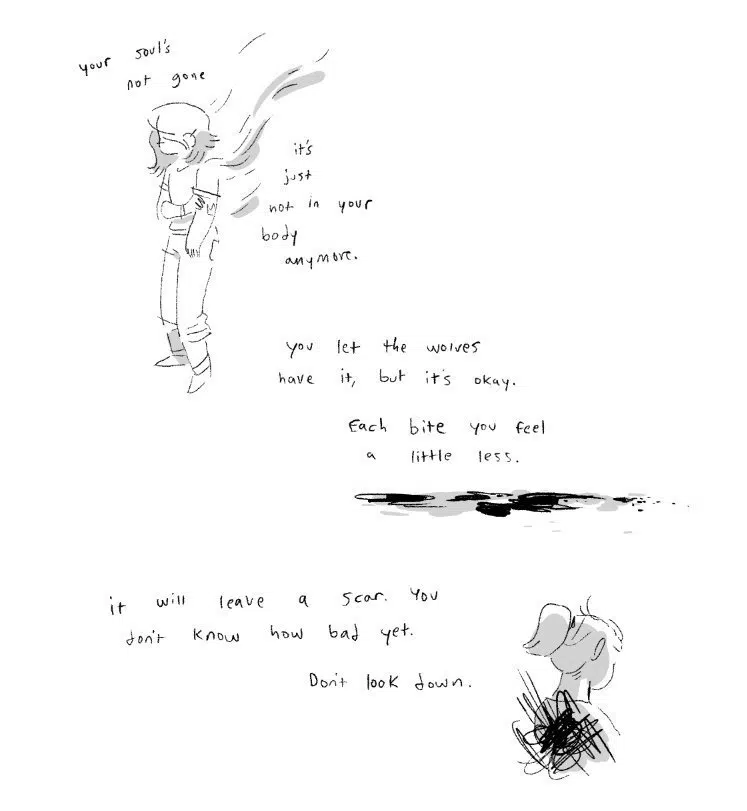 your soul's
not gone
it's
just
not in your
body
anymore.
you let the wolves
have it, but it's okay.
Each bite you feel
a little less.
it will leave a scar. You
don't know how bad yet.
Don't look down.